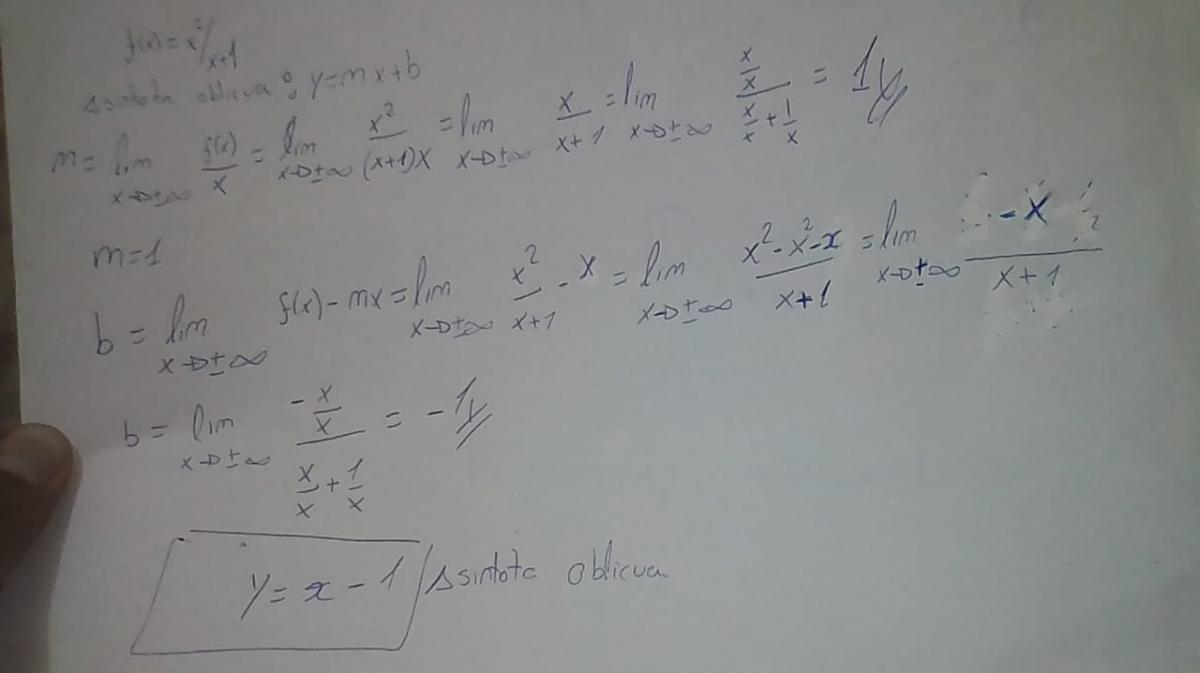 f(x) = x²/x+1
Assintota oblicua : y = mx + b
m = lim x→±∞ f(x)/x = lim x→±∞ x²/(x+1)x = lim x→±∞ x/x+1 = lim x→±∞ (x/x)/(x/x + 1/x) = 1//
m = 1
b = lim x→±∞ f(x) - mx = lim x→±∞ x²/x+1 - x = lim x→±∞ x²-x²-x/x+1 = lim x→±∞ -x/x+1
b = lim x→±∞ (-x/x)/(x/x + 1/x) = -1//
y = x - 1 Assintota oblicua